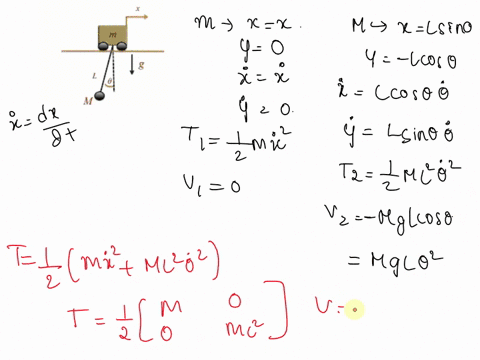 x
m
L
θ
g
M
ẋ = dx/dt
m → x = x.
y = 0
ẋ = ẋ
ẏ = 0.
T₁ = 1/2 mẋ²
V₁ = 0
M → x = Lsinθ
y = -Lcosθ
ẋ = Lcosθ θ̇
ẏ = Lsinθ θ̇
T₂ = 1/2 ML²θ̇²
V₂ = -MgLcosθ
= MgLθ²
T = 1/2 (mẋ² + ML²θ̇²)
T = 1/2 [ M 0
0 ML² ]
V =